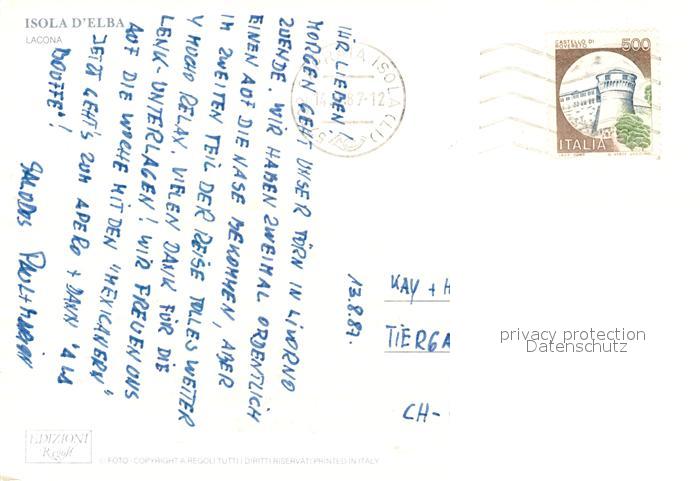 ISOLA D'ELBA
LACONA
IHR LIEBEN!
MORGEN GEHT UNSER TÖRN IN LIVORNO
ZUENDE. WIR HABEN ZWEIMAL ORDENTLICH
EINEN AUF DIE NASE BEKOMMEN, ABER
IM ZWEITEN TEIL DER REISE TOLLES WETTER
Y MUCHO RELAX. VIELEN DANK FÜR DIE
LENK-UNTERLAGEN! WIR FREUEN UNS
AUF DIE WOCHE MIT DEN "MEXICANERN"
JETZT GEHT'S ZUM APERO + DANN "ALA
BOUFFE"!
SALUDOS
13.8.87.
ISOLA (LI)
87-12
CASTELLO DI
ROVERETO
500
ITALIA
KAY + H
TIERGA
CH-
privacy protection
Datenschutz
EDIZIONI
Regoli
© FOTO - COPYRIGHT A. REGOLI TUTTI I DIRITTI RISERVATI PRINTED IN ITALY